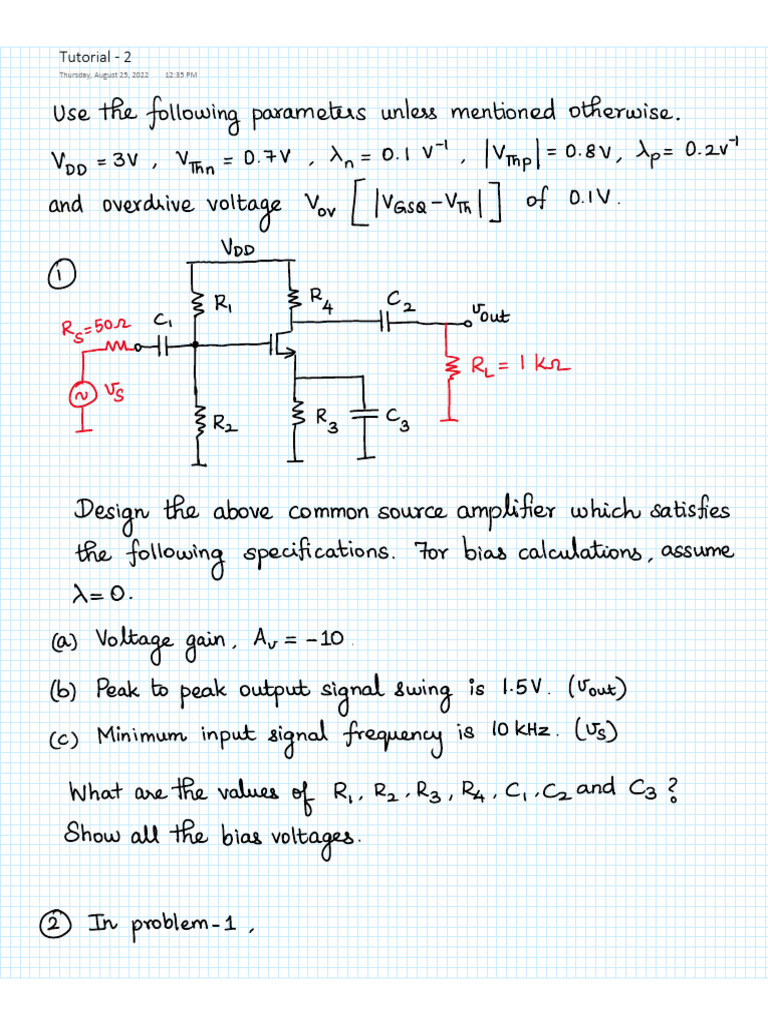 Tutorial - 2
Thursday, August 25, 2022 12:35 PM
Use the following parameters unless mentioned otherwise.
V_DD = 3V , V_Thn = 0.7V , λ_n = 0.1 V⁻¹ , |V_Thp| = 0.8V, λ_p = 0.2V⁻¹
and overdrive voltage V_ov [|V_GSQ - V_Th|] of 0.1V.
①
V_DD
R₁
R₄
C₂
v_out
R_S=50Ω
C₁
R_L = 1 kΩ
v_S
R₂
R₃
C₃
Design the above common source amplifier which satisfies
the following specifications. For bias calculations, assume
λ=0.
(a) Voltage gain, A_v = -10.
(b) Peak to peak output signal swing is 1.5V. (v_out)
(c) Minimum input signal frequency is 10 kHz. (v_S)
What are the values of R₁, R₂, R₃, R₄, C₁, C₂ and C₃?
Show all the bias voltages.
② In problem-1,